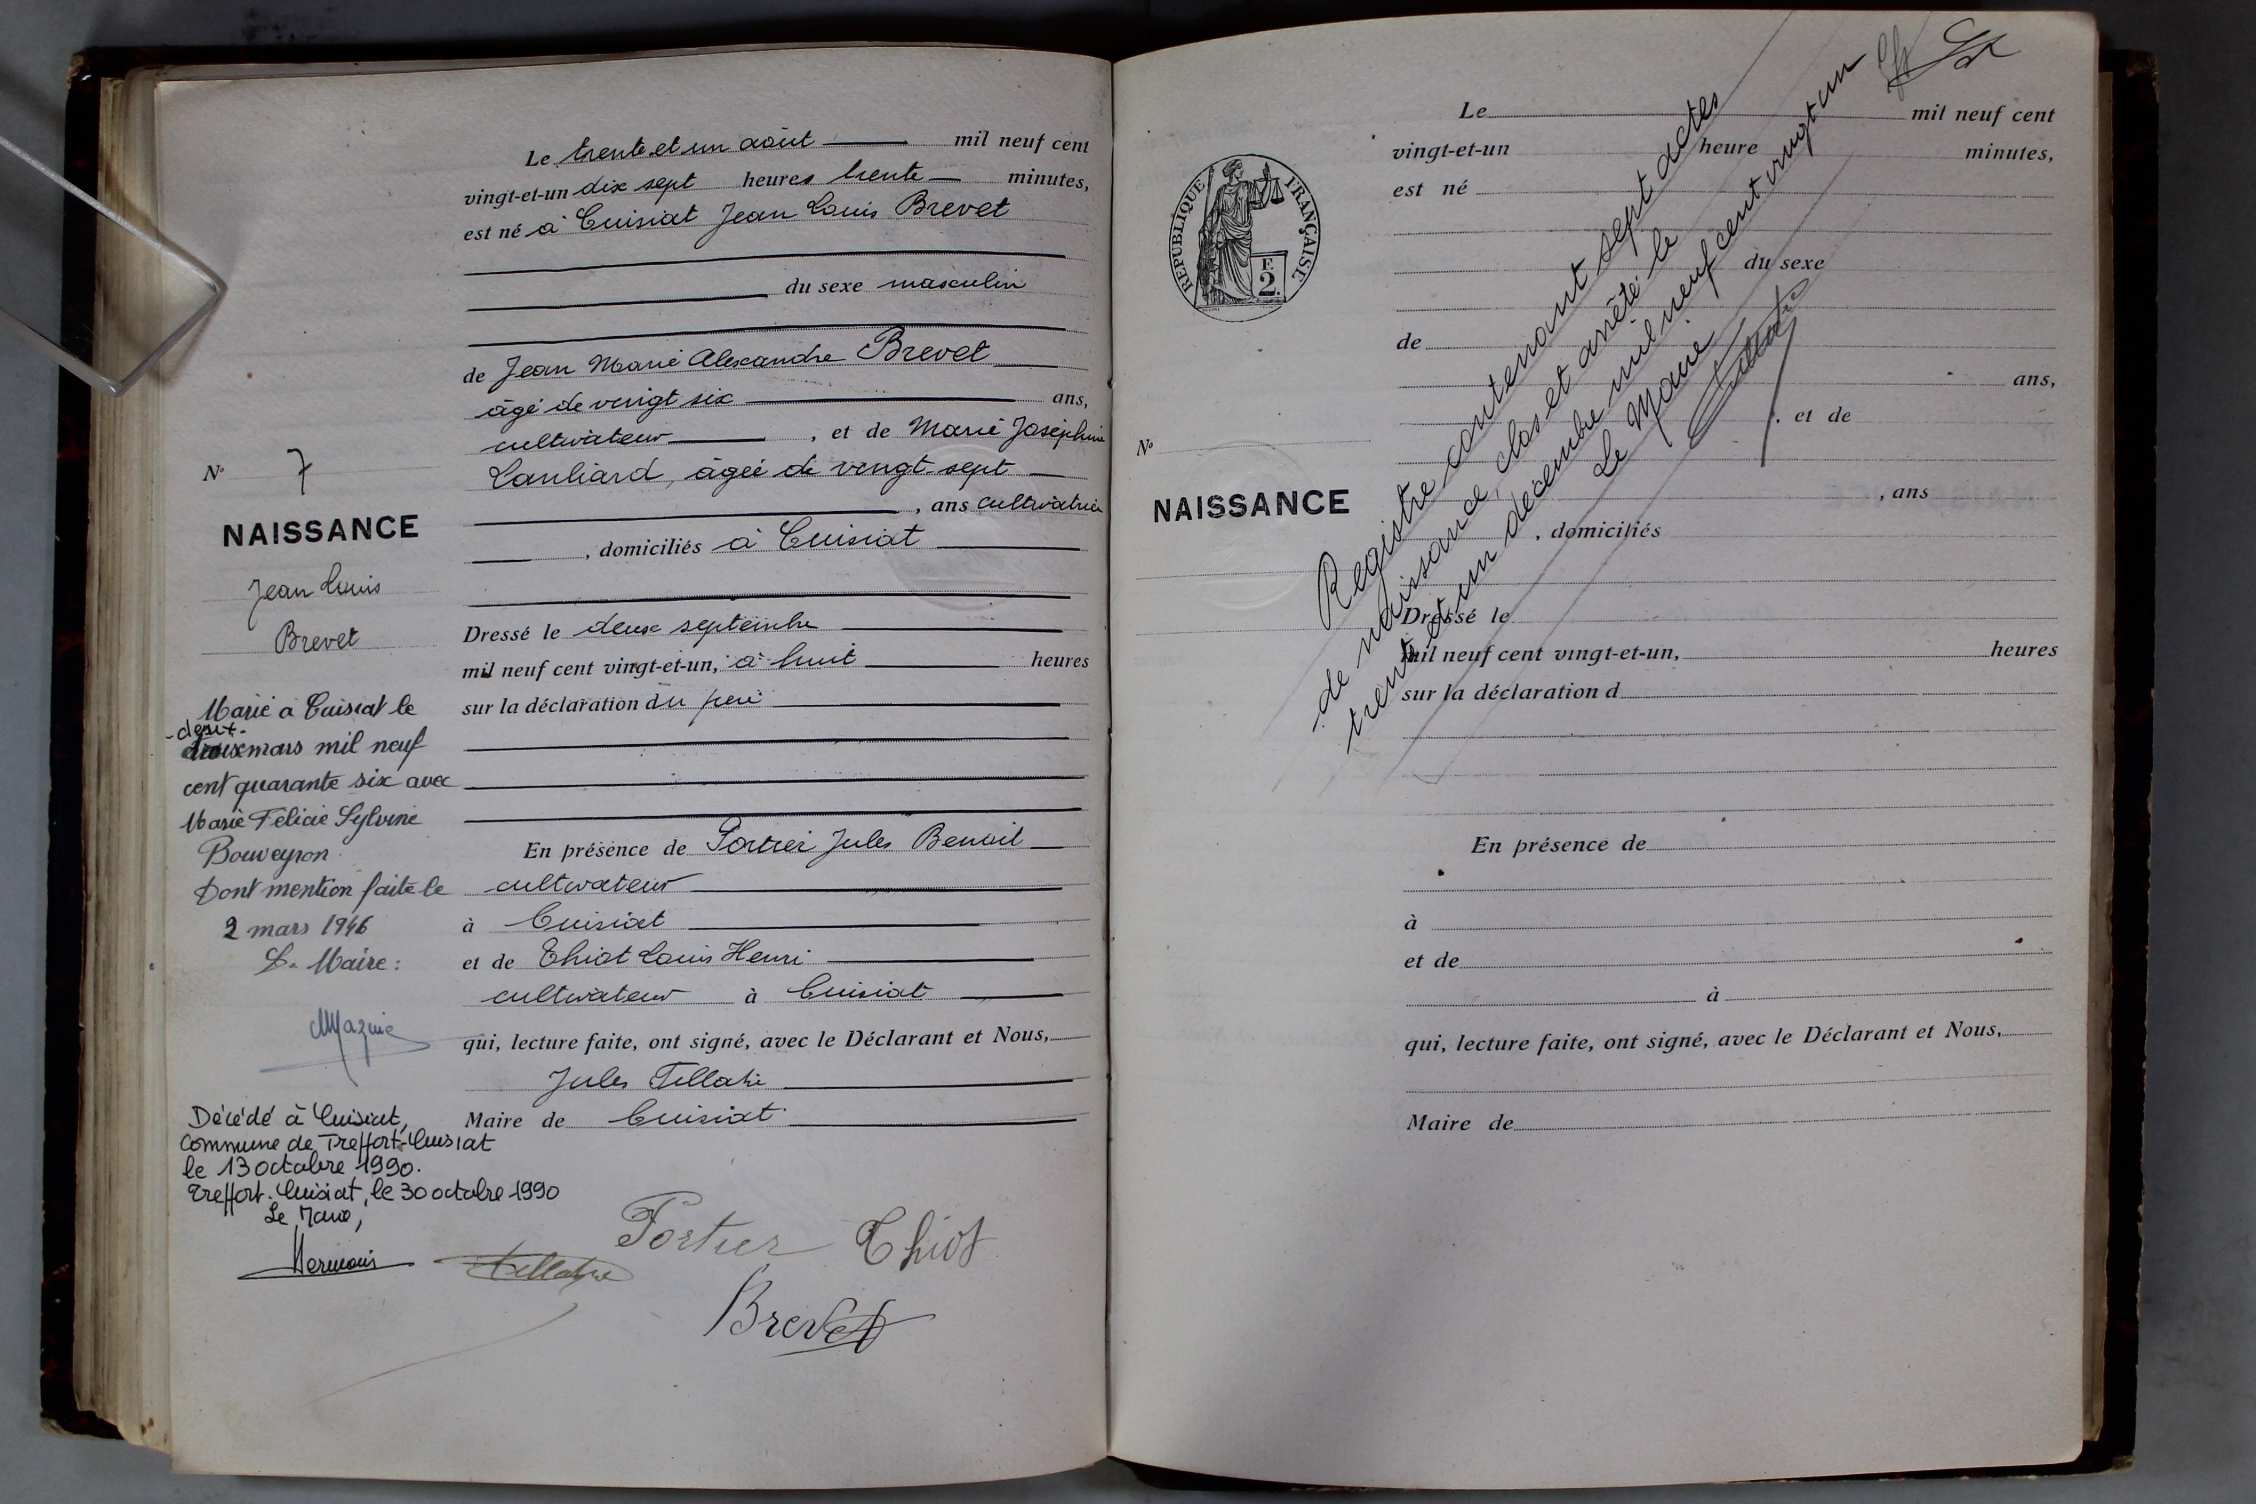 N° 7
NAISSANCE
Jean Louis
Brevet
Marié à Cuisiat le
-deux-
mars mil neuf
cent quarante six avec
Marie Félicie Sylvine
Bouveyron
Dont mention faite le
2 mars 1946
Le Maire :
Décédé à Cuisiat,
Commune de Treffort-Cuisiat
le 13 octobre 1990.
Treffort-Cuisiat, le 30 octobre 1990
Le Maire,
Le trente et un août mil neuf cent
vingt-et-un dix sept heures trente minutes,
est né à Cuisiat Jean Louis Brevet
du sexe masculin
de Jean Marie Alexandre Brevet
âgé de vingt six ans,
cultivateur, et de Marie Joséphine
âgée de vingt sept
, ans cultivatrice
, domiciliés à Cuisiat
Dressé le deux septembre
mil neuf cent vingt-et-un, à huit heures
sur la déclaration du père
En présence de Portier Jules Benoit
cultivateur
à Cuisiat
et de Thiot Louis Henri
cultivateur à Cuisiat
qui, lecture faite, ont signé, avec le Déclarant et Nous,
Jules
Maire de Cuisiat
Portier Thiot
Brevet
RÉPUBLIQUE FRANÇAISE
F.
2
N°
NAISSANCE
Le mil neuf cent
vingt-et-un heure minutes,
est né
du sexe
de
ans,
, et de
, ans
, domiciliés
Dressé le
mil neuf cent vingt-et-un, heures
sur la déclaration d
En présence de
à
et de
à
qui, lecture faite, ont signé, avec le Déclarant et Nous,
Maire de
Registre contenant sept actes
de naissance, clos et arrêté le
trente et un décembre mil neuf cent vingt un
Le Maire